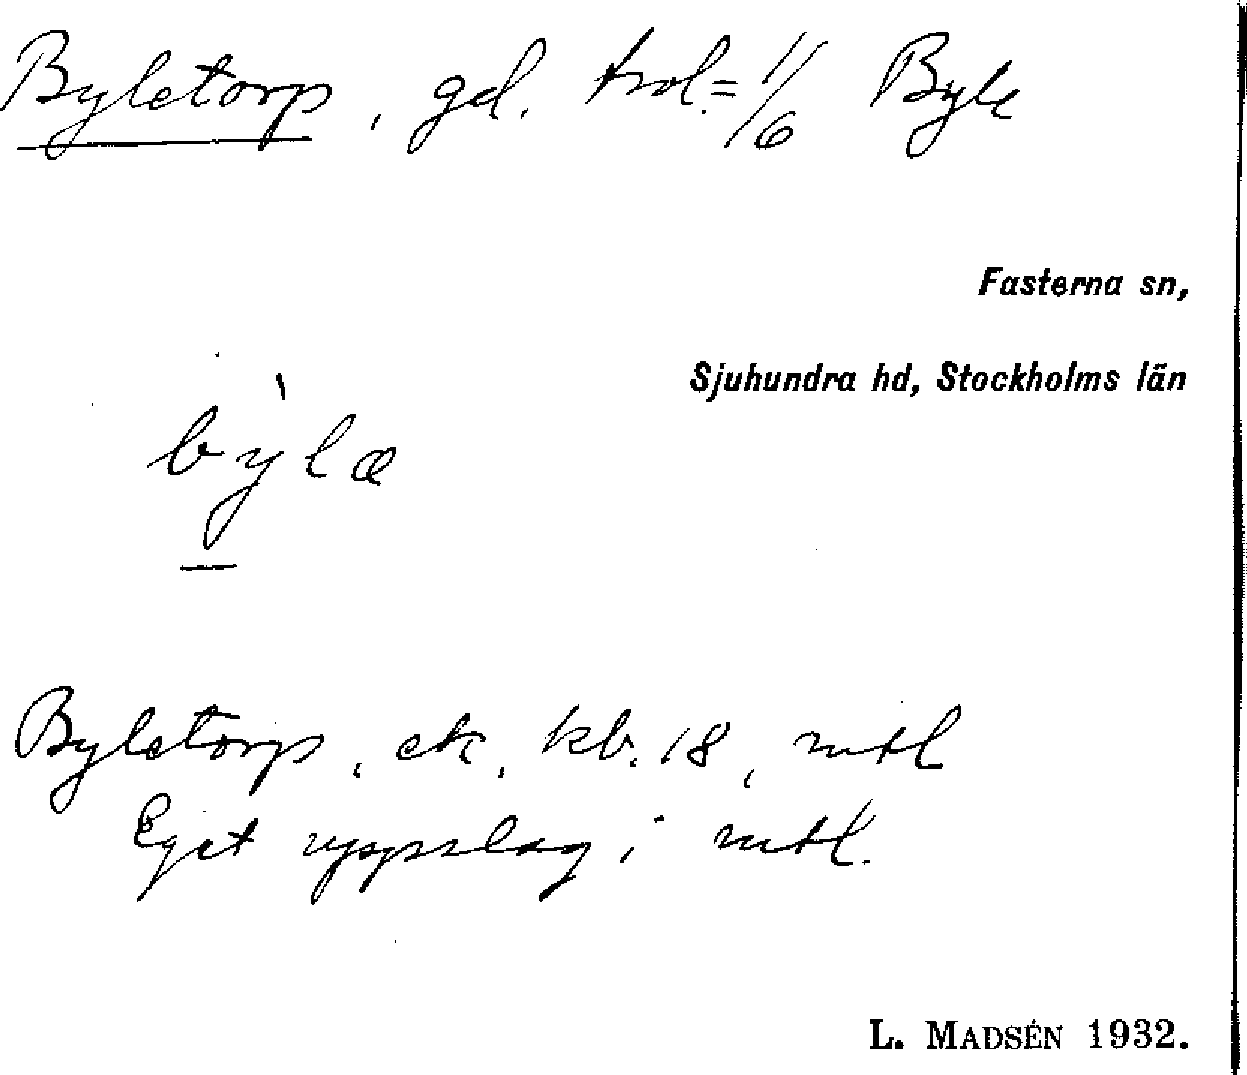 Byletorp, gd. trol. = 1/6 Byle
Fasterna sn,
Sjuhundra hd, Stockholms län
bỳ̱læ
Byletorp, ek, kb. 18, mtl
Eget uppslag i mtl.
L. MADSÉN 1932.